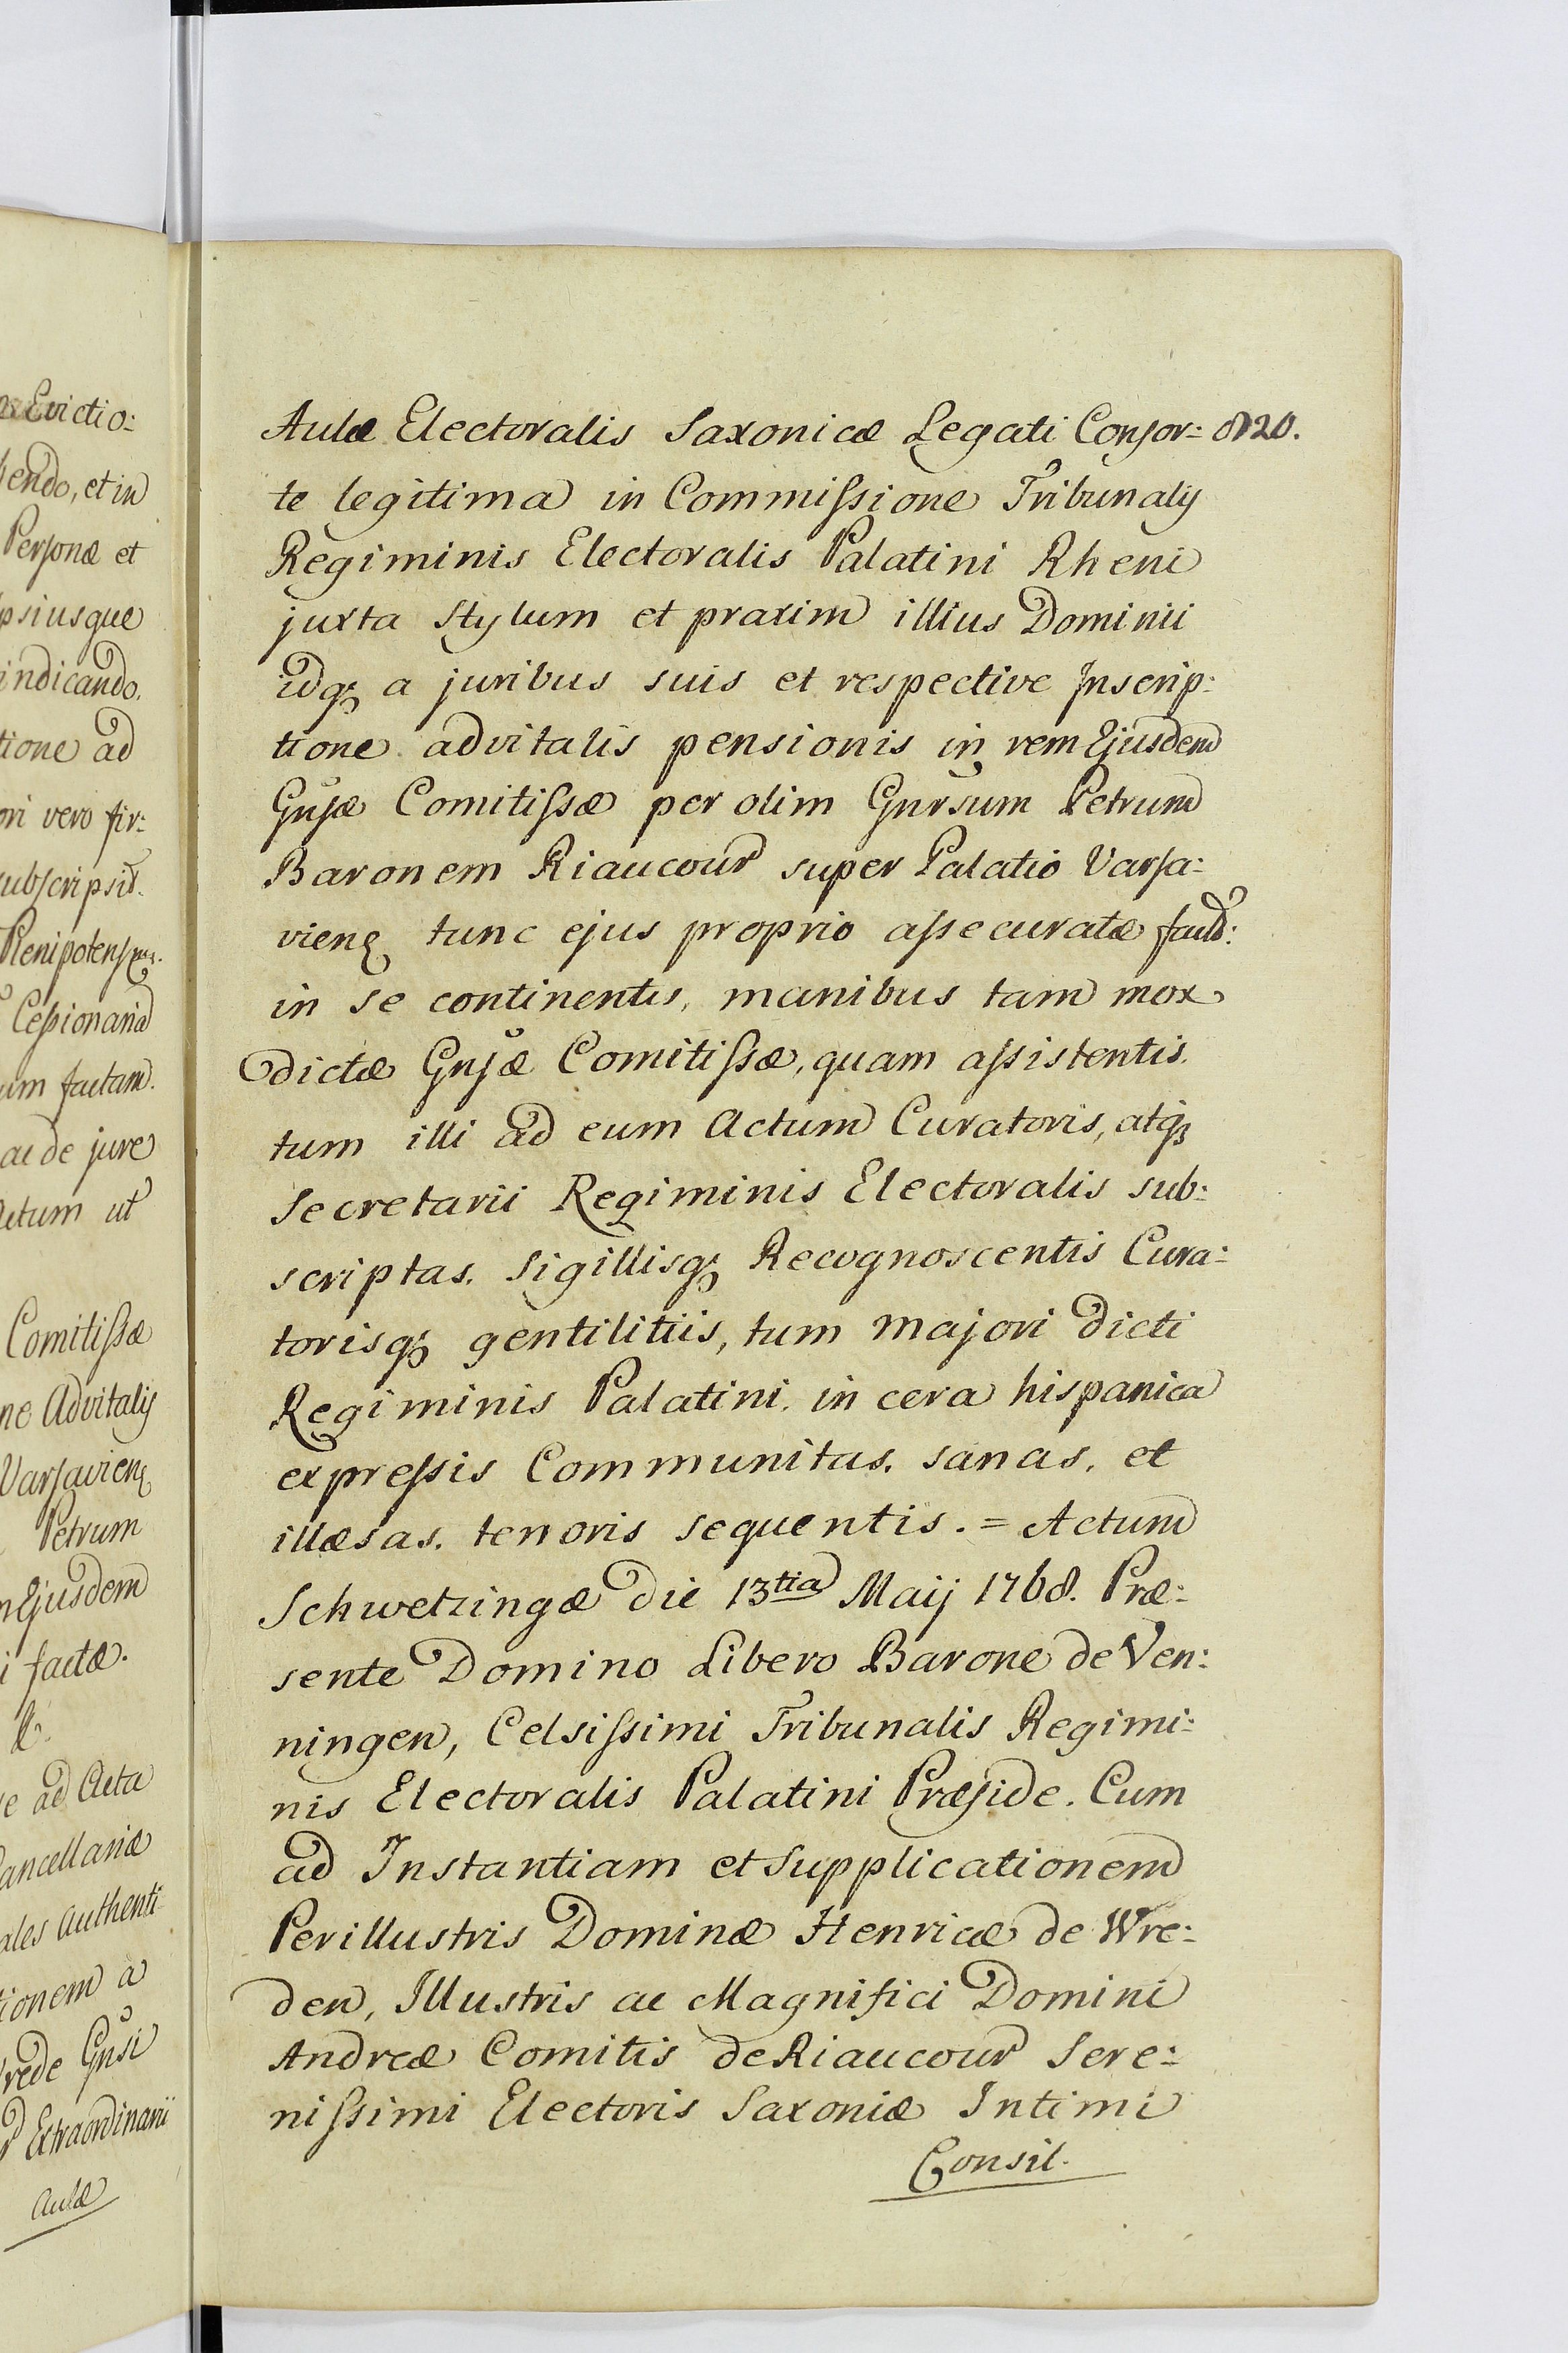 n Evictio:
hendo, et in
Personæ et
psiusque
indicando.
tione ad
ori vero fir:
subscripsit.
Cessionaria
um factam.
ac de jure
Actum ut
Comitissæ
ne Advitalis
Varsavien
Petrum
n Ejusdem
i factæ.
e ad Acta
Cancellariæ
ales Authenti
tionem a
rede Gnsi
Extraordinarii
Aulæ
Aulæ Electoralis Saxonicæ Legati Consor: 820.
te legitima in Commissione Tribunalis
Regiminis Electoralis Palatini Rheni
juxta Stylum et praxim illius Dominii
idq; a juribus suis et respective Inscrip:
tione advitalis pensionis in rem Ejusdem
Gnsæ Comitissæ per olim Gnrsum Petrum
Baronem Riaucour super Palatio Varsa:
vien tunc ejus proprio assecuratæ fact:
in se continentes, manibus tam mox
dictæ Gnsæ Comitissæ, quam assistentis.
tum illi ad eum Actum Curatoris, atq;
Secretarii Regiminis Electoralis sub:
scriptas. Sigillisq; Recognoscentis Cura:
torisq; gentilitiis, tum majori dicti
Regiminis Palatini. in cera hispanica
expressis Communitas. sanas. et
illæsas. tenoris sequentis. = Actum
Schwetzingæ Die 13tia Maij 1768. Præ:
sente Domino Libero Barone de Ven:
ningen, Celsissimi Tribunalis Regimi:
nis Electoralis Palatini Præside. Cum
ad Instantiam et Supplicationem
Perillustris Dominæ Henricæ de Wre:
den, Illustris ac Magnifici Domini
Andreæ Comitis de Riaucour Sere:
nissimi Electoris Saxoniæ Intimi
Consil.